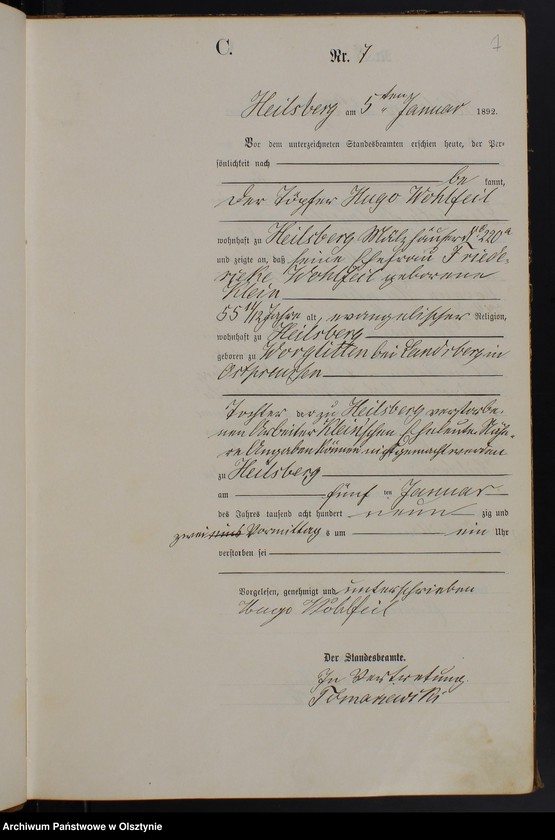 C.
Nr. 7
1
Heilsberg am 5ten Januar 1892.
Vor dem unterzeichneten Standesbeamten erschien heute, der Per-
sönlichkeit nach
be kannt,
der Töpfer Hugo Wohlfeil
wohnhaft zu Heilsberg Mälzhäuser № 220a
und zeigte an, daß seine Ehefrau Friede-
ricke Wohlfeil geborene
Klein
55 11/12 Jahre alt, evangelischer Religion,
wohnhaft zu Heilsberg
geboren zu Worglitten bei Landsberg in
Ostpreußen
Tochter der zu Heilsberg verstorbe-
nen Arbeiter Klein'schen Eheleute. Nähe-
re Angaben können nicht gemacht werden
zu Heilsberg
am fünf ten Januar
des Jahres tausend acht hundert neun zig und
zwei eins Vormittag s um ein Uhr
verstorben sei
Vorgelesen, genehmigt und unterschrieben
Hugo Wohlfeil
Der Standesbeamte.
In Vertretung.
Tomaszewski
Archiwum Państwowe w Olsztynie